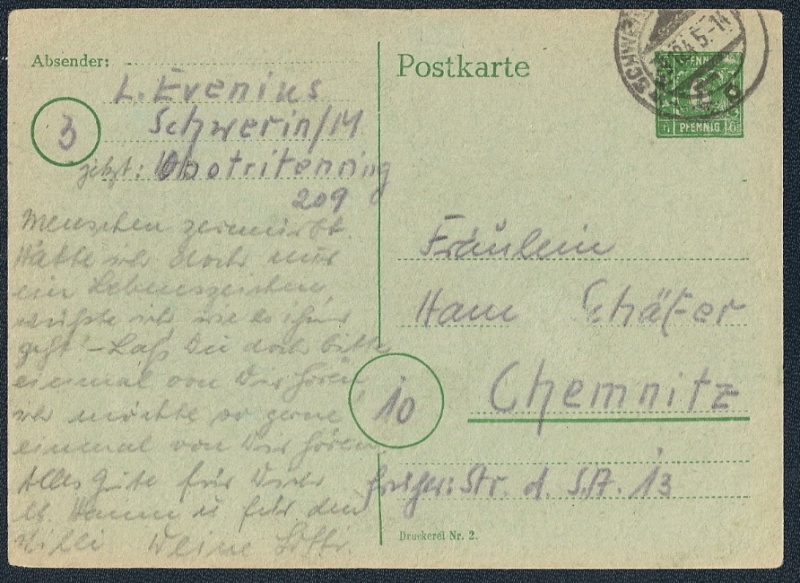 Absender:
L. Evenius
Schwerin/M
3
jetzt: Obotritenring
209
Menschen zermürbt.
Hätte ich doch nur
ein Lebenszeichen,
wüßte ich, wie es ihm
geht - Laß Du doch bitte
einmal von Dir hören,
ich möchte so gerne
einmal von Dir hören.
Alles Gute für Dich
lb. Hanni u für den
Willi Deine
Postkarte
SCHWERIN
45.-14
PFENNIG
6
Fräulein
Hanni Schäfer
10
Chemnitz
früher: Str. d. S.A. 13
Druckerei Nr. 2.